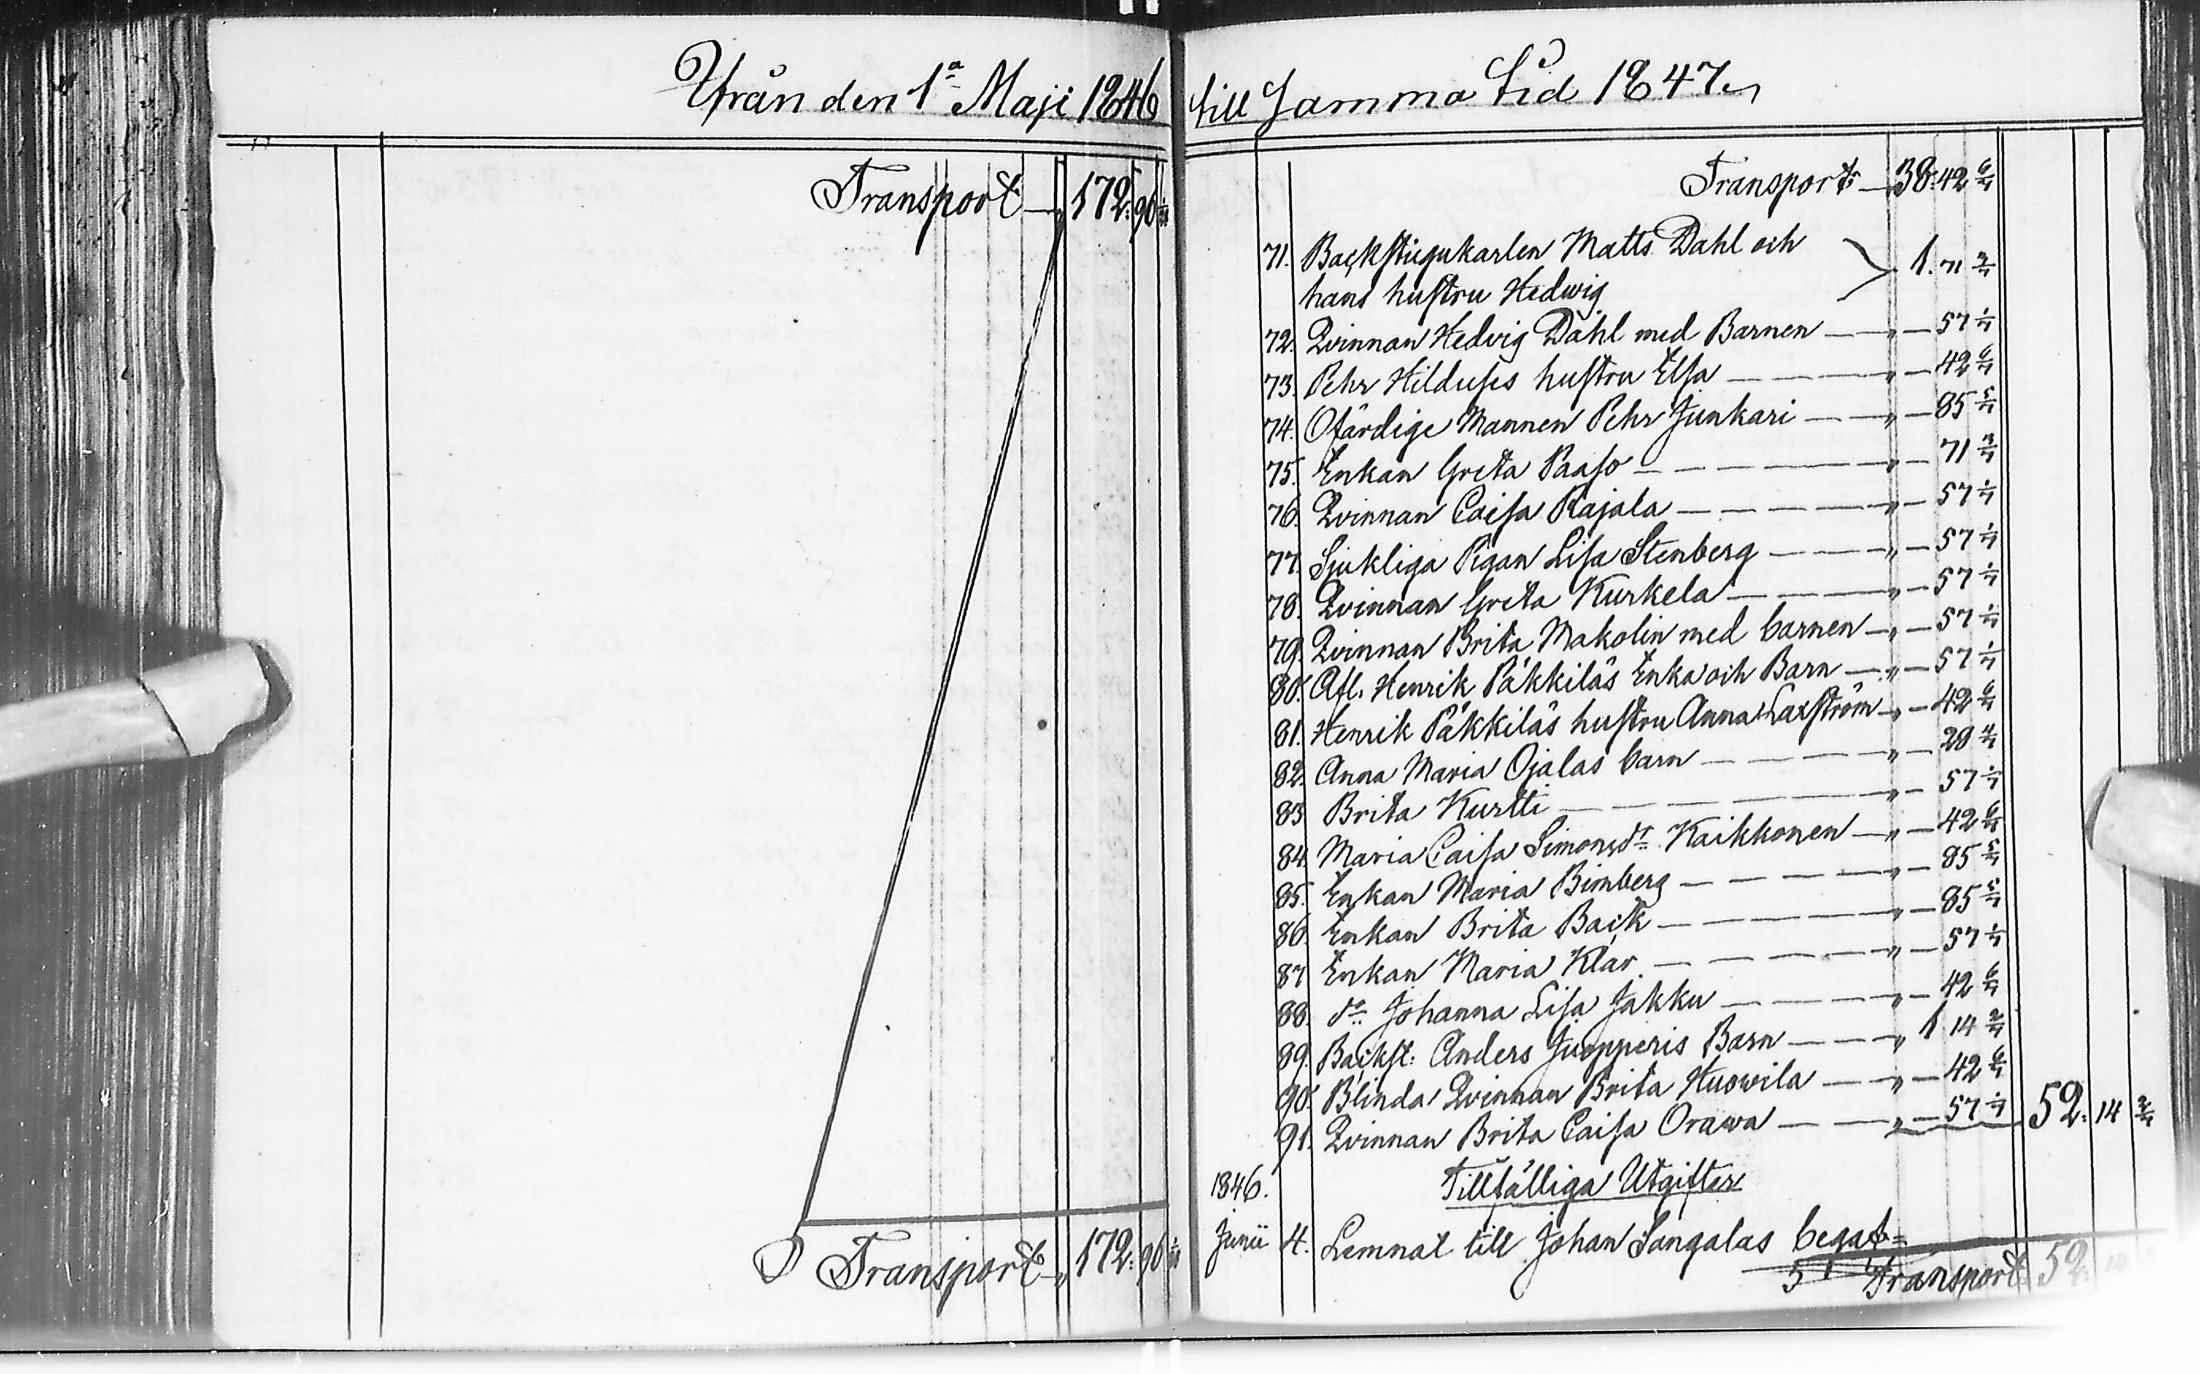 Ifrån den 1a Maji 1846
Transport — „ 172. 96
Transport — „ 172. 96
till Samma tid 1847.
Transport — 38. 42 6/7
71. Backstugukarlen Matts Dahl och
hans hustru Hedwig 1. 71 3/7
72. Qvinnan Hedvig Dahl med Barnen — „ — 57 1/7
73. Pehr Hilduses hustru Elsa — „ — 42 6/7
74. Ofärdige Mannen Pehr Junkari — „ — 85 5/7
75. Enkan Greta Paaso — „ — 71 3/7
76. Qvinnan Caisa Rajala — „ — 57 1/7
77. Sjukliga Pigan Lisa Stenberg — „ — 57 1/7
78. Qvinnan Greta Kurkela — „ — 57 1/7
79. Qvinnan Brita Makolin med barnen — „ — 57 1/7
80. Afl. Henrik Päkkiläs Enka och Barn — „ — 57 1/7
81. Henrik Päkkiläs hustru Anna Laxström „ — 42 6/7
82. Anna Maria Ojalas barn — „ — 28 4/7
83 Brita Kurtti — „ — 57 1/7
84 Maria Caisa Simonsdr Kaikkonen — „ — 42 6/7
85. Enkan Maria Bimberg — „ — 85 5/7
86. Enkan Brita Back — „ — 85 5/7
87 Enkan Maria Klar. — „ — 57 1/7
88. do Johanna Lisa Jakku — „ — 42 6/7
89. Backst. Anders Juopperis Barn — „ 1 14 2/7
90. Blinda Qvinnan Brita Huowila — „ — 42 6/7
91. Qvinnan Brita Caisa Orawa — „ — 57 1/7 52. 14 2/7
1846. Tillfälliga Utgifter
Junii 4. Lemnat till Johan Sangalas begaf=
Transport 52. 14